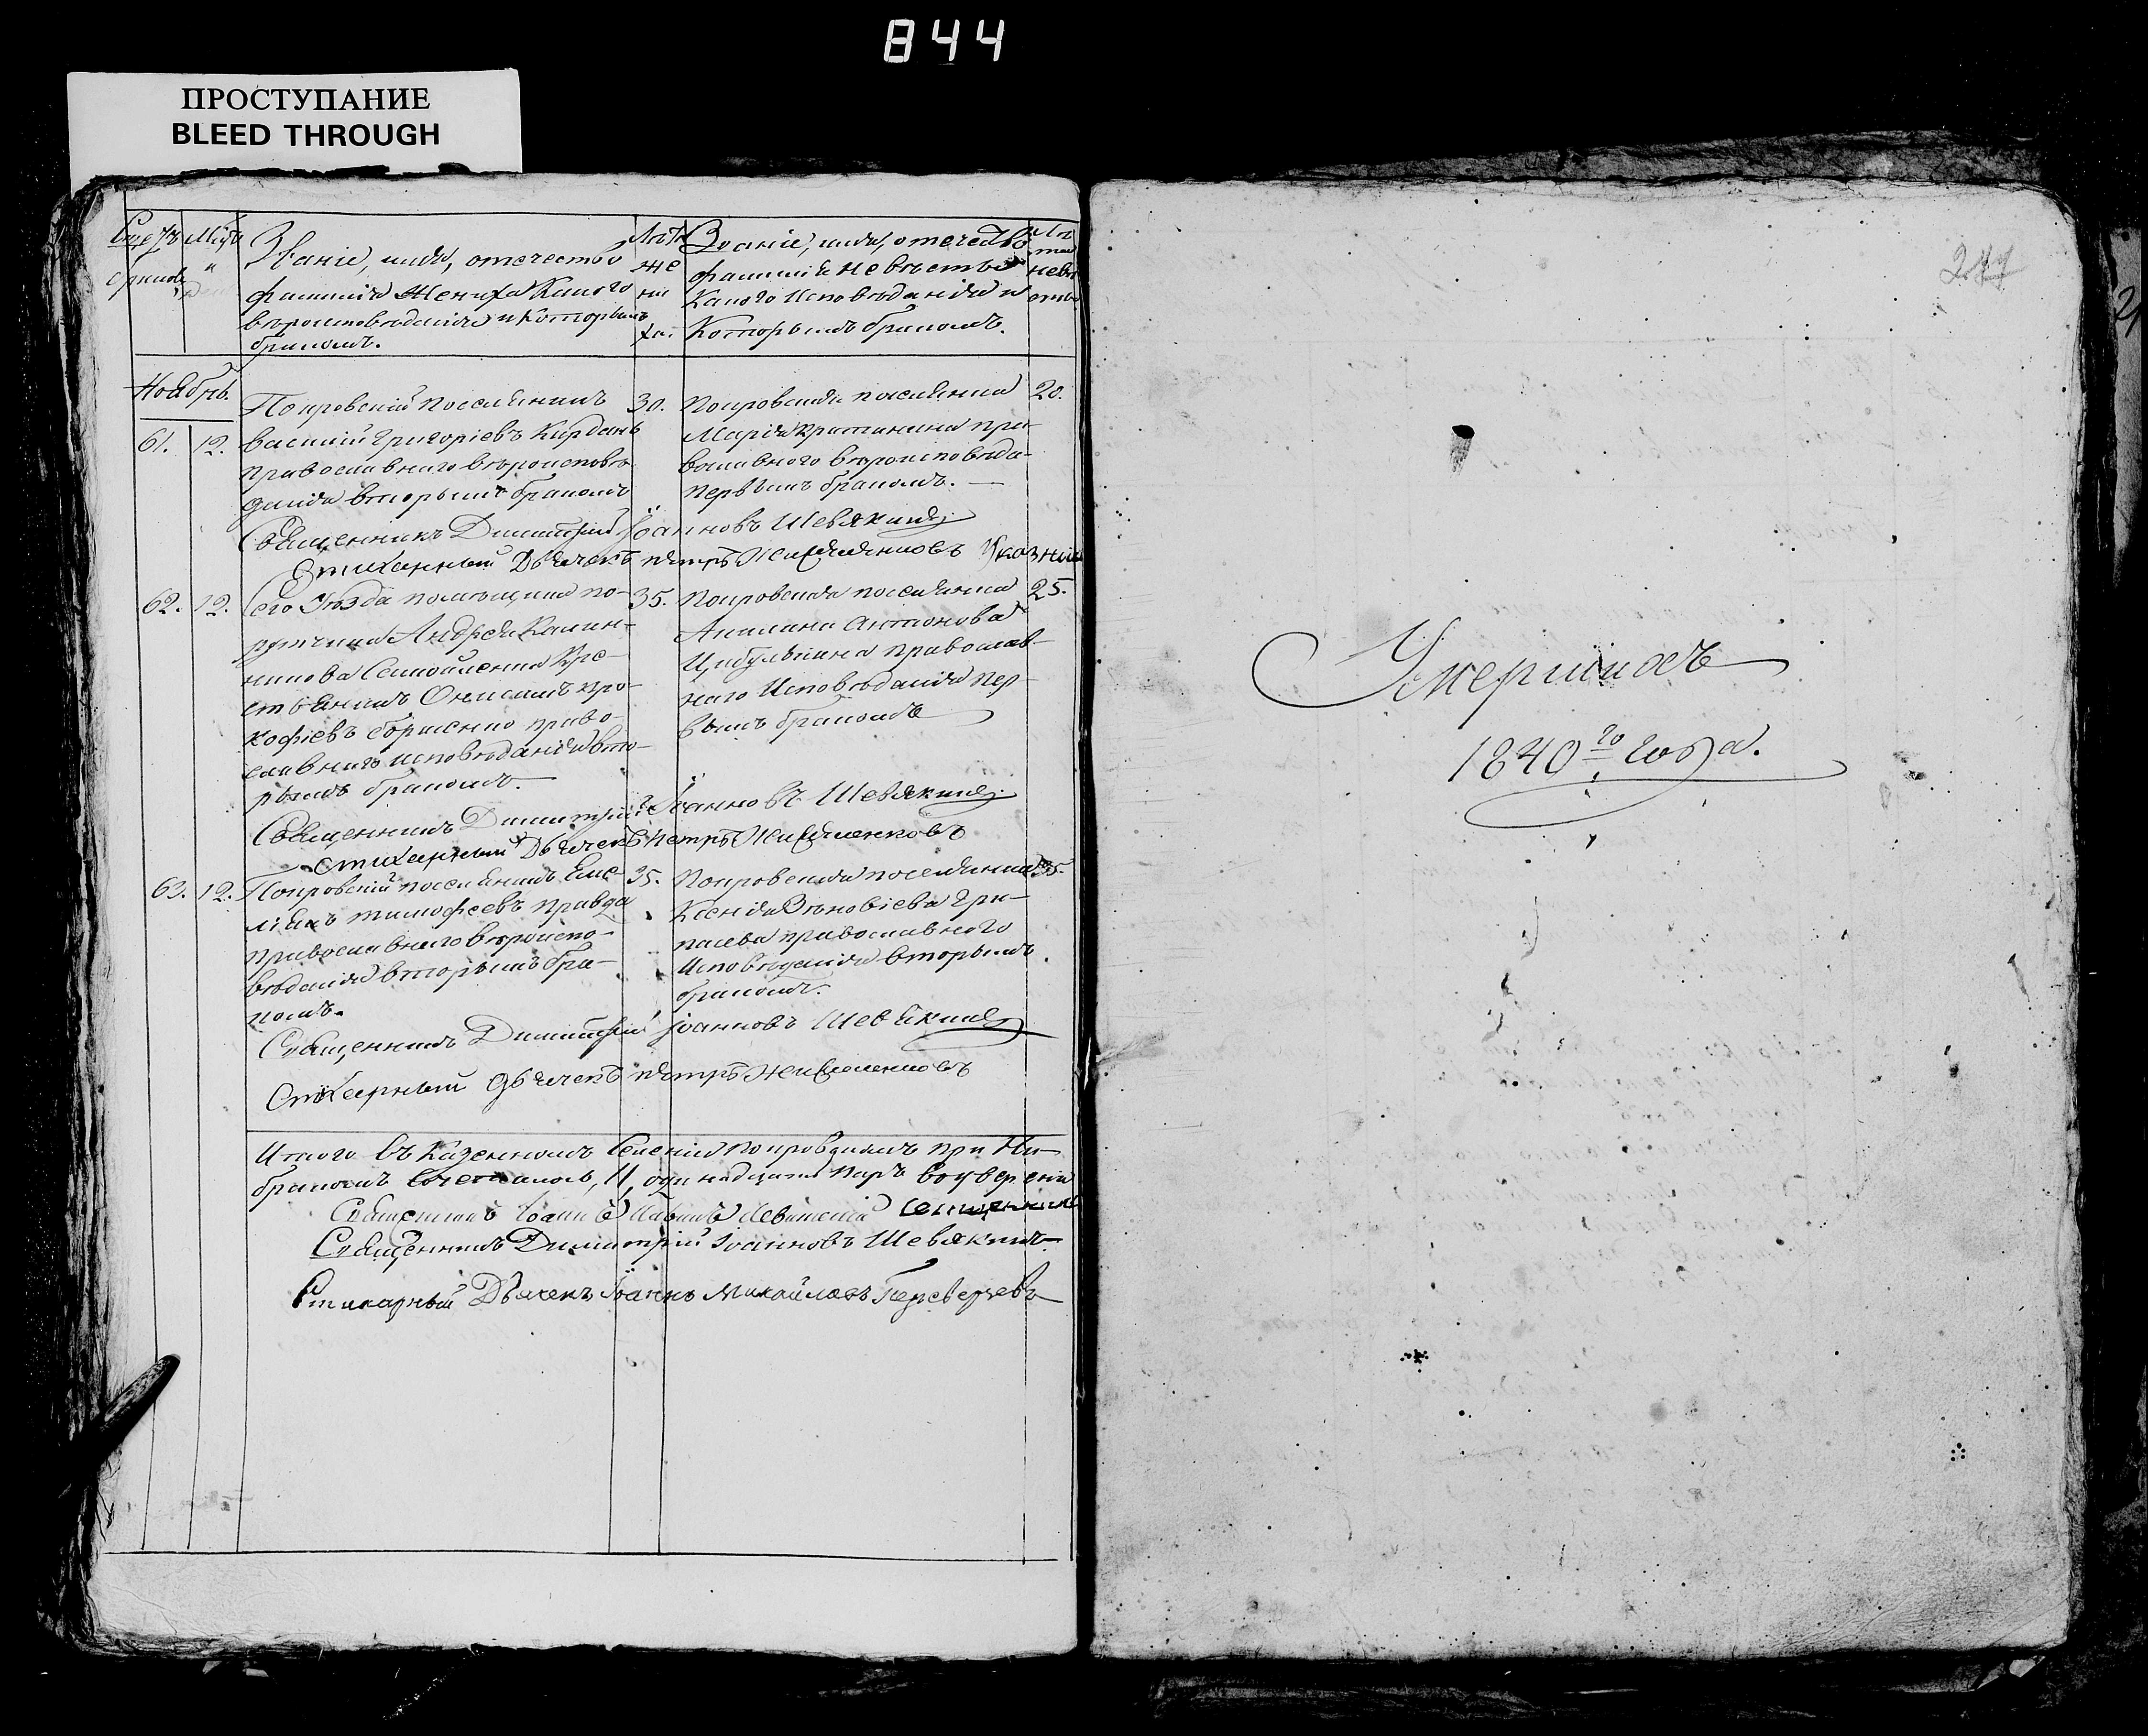 844
ПРОСТУПАНИЕ
BLEED THROUGH
Званіе, имя, отечество
фамилія жениха Какого
вѣроисповѣданія и Которымъ
бракомъ.
Лѣта
же
ни
ха.
Званіе, имя, отечество
фамилія невѣсты
Какого Исповѣданія и
Которымъ бракомъ.
Ноябрь.
61. 12.
Покровскій поселянинъ
василій григоріевъ Кирданъ
православнаго вѣроисповѣ
данія вторымъ бракомъ
30.
Покровская поселянка
Марія
вославнаго вѣроисповѣда-
первымъ бракомъ.
20.
Священникъ Димитрій Іоанновъ Шевякинъ
Стихарный Дьячекъ петръ
62. 12.
Сего Уѣзда помѣщика по-
ручика Андрея Калин-
никова Самойленка Кре-
стьянинъ Онисимъ про-
кофіевъ православнаго исповѣданія вто-
рымъ бракомъ.
35.
Покровская поселянка
Акилина антонова
Цибулькина православ-
наго Исповѣданія пер-
вымъ бракомъ
25.
Священникъ Димитрій Іоанновъ Шевякинъ
стихарный Дьячекъ петръ
63. 12.
Покровскій поселянинъ Еме-
ліянъ тимофеевъ правда
православнаго вѣроиспо-
вѣданія вторымъ бра-
комъ.
35.
Покровская поселянка
Ксенія Зѣновіева
православнаго
Исповѣданія вторымъ
бракомъ.
35.
Священникъ Димитрій Іоанновъ Шевякинъ
Стихарный дьячекъ петръ
Итого въ Казенномъ Селеніи покровскомъ при
бракомъ сочеталось, 11, одинадцать паръ
Священникъ Іоаннъ Левитскій
Священникъ Димитрій Іоанновъ Шевякинъ
Стихарный Дьячекъ Іоаннъ Михайловъ Переверзевъ
Умершихъ
1840го года.